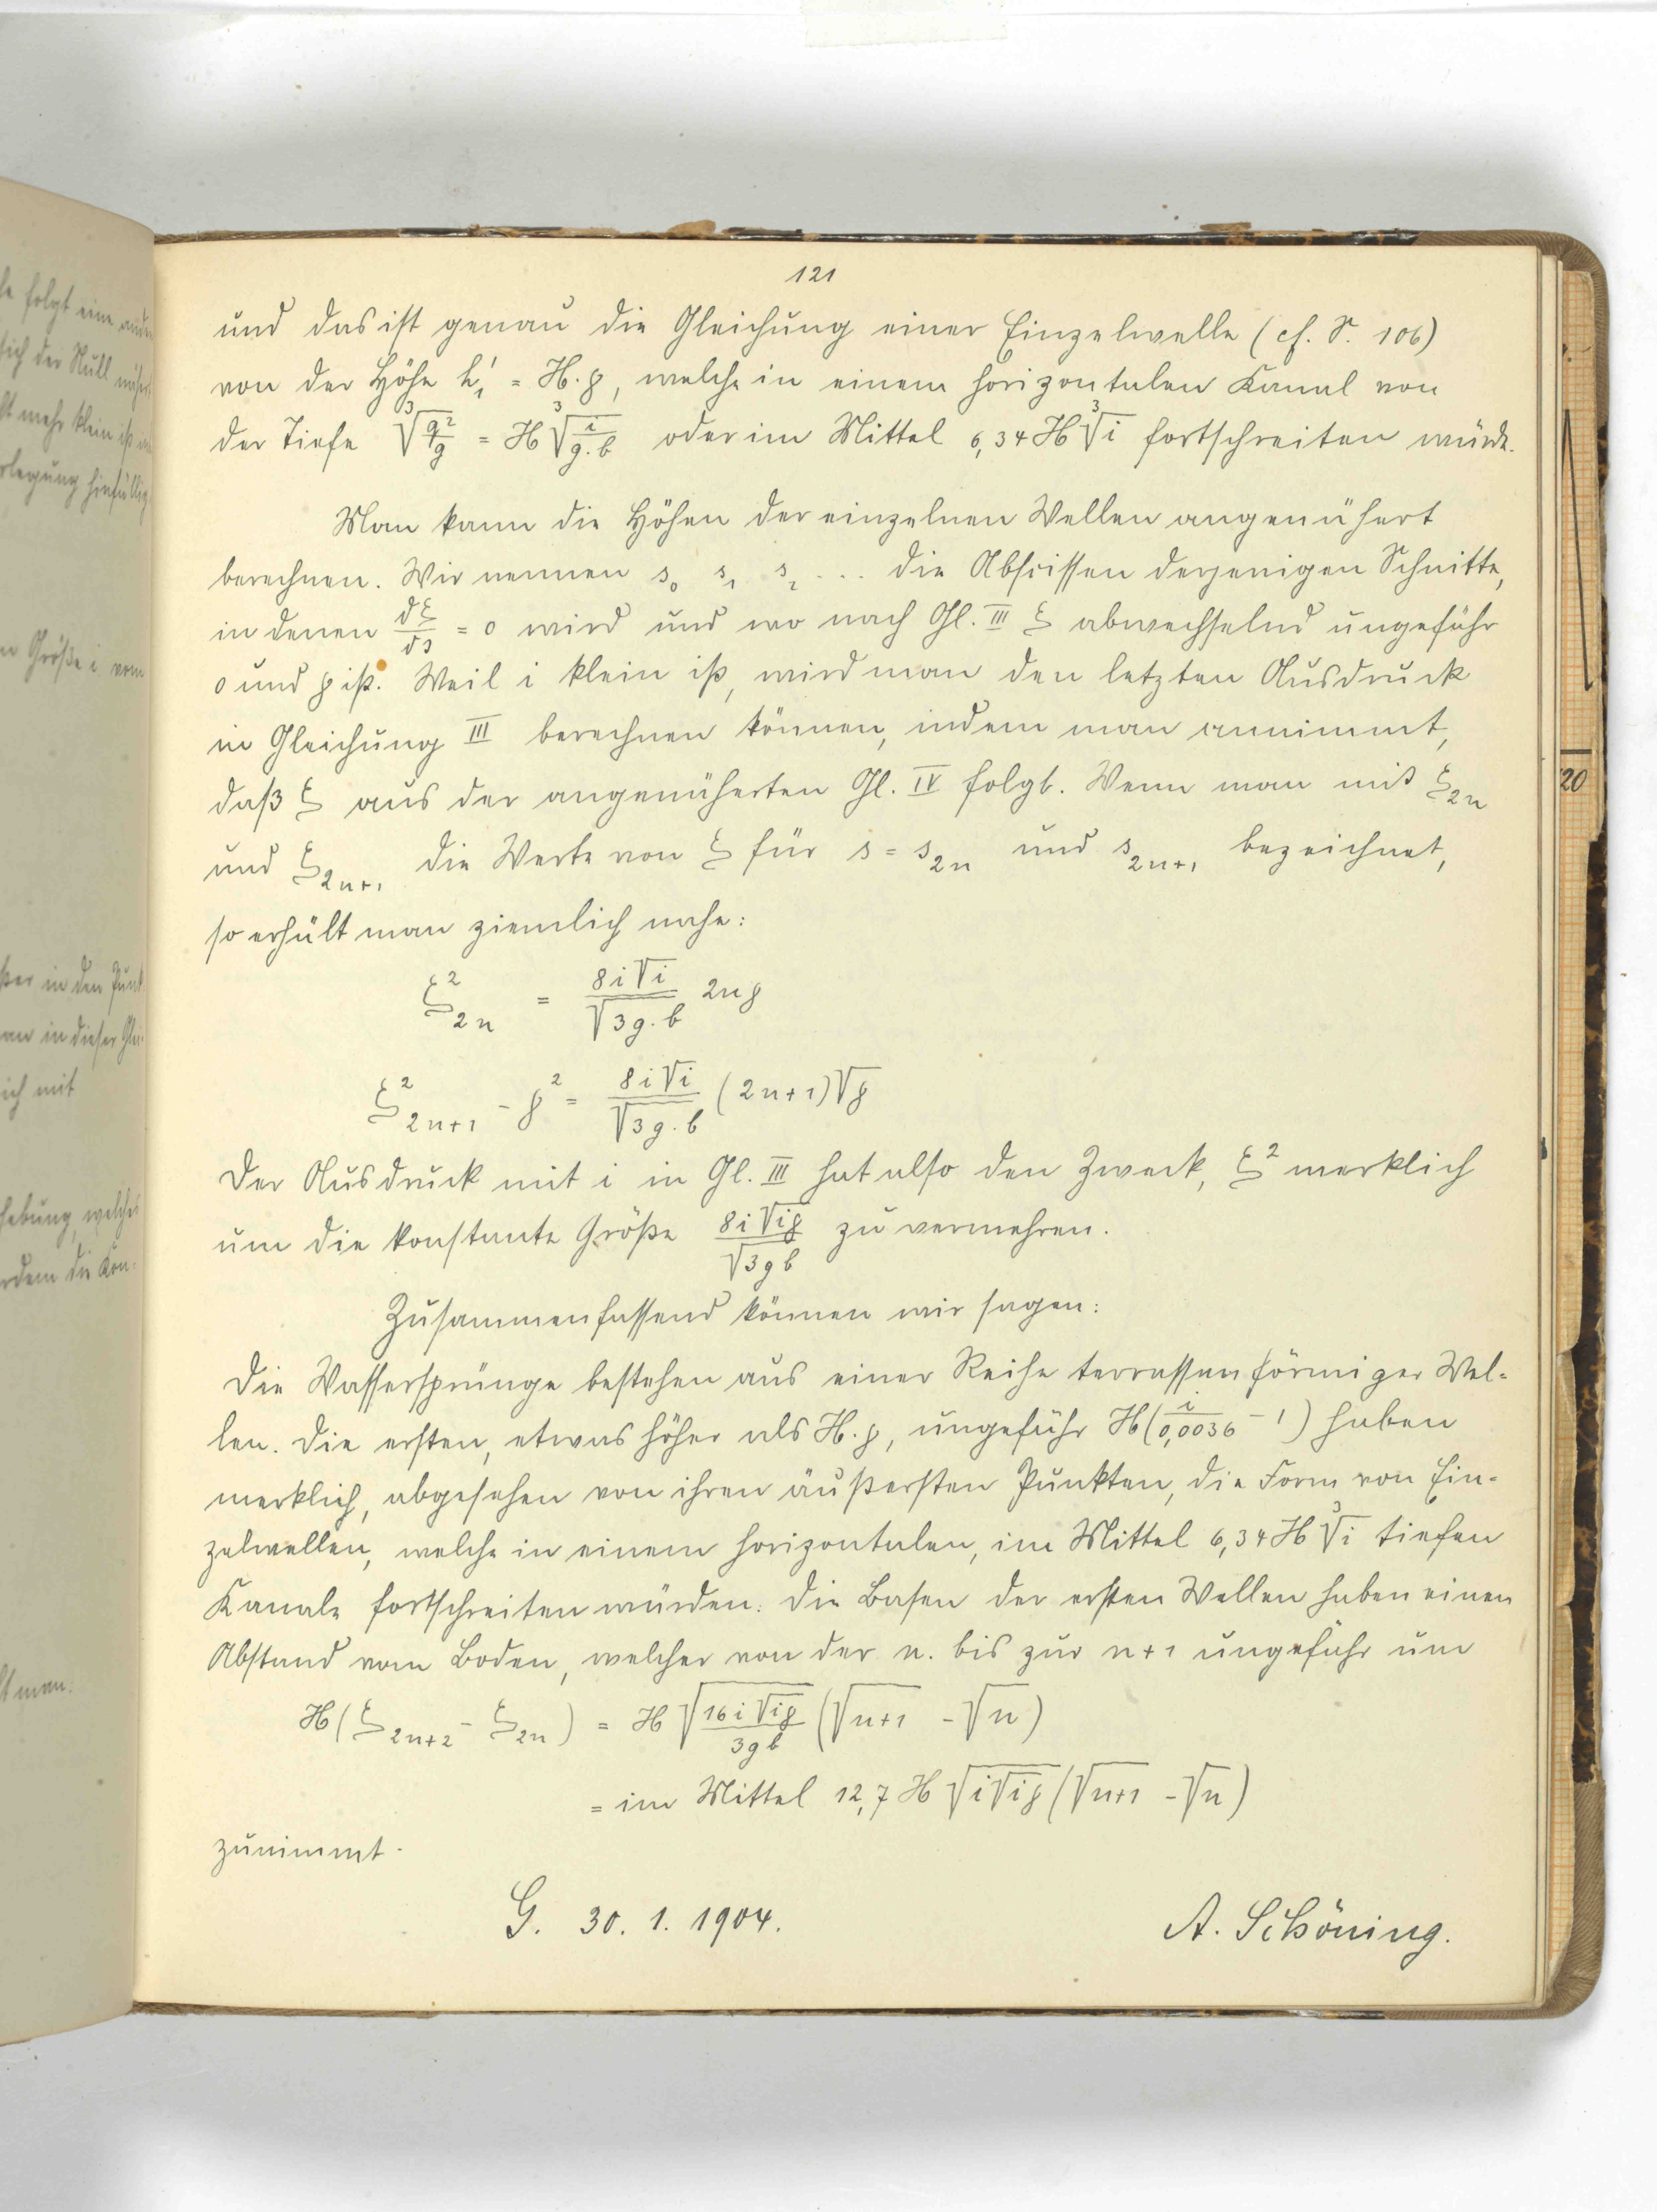 121
und das ist genau die Gleichung einer Einzelwelle (cf. S. 106)
von der Höhe h₁' = H.p, welche in einem horizontalen Kanal von
der Tiefe ∛(q²/g) = H ∛(i/(g.b)) oder im Mittel 6,34 H ∛i fortschreiten würde.
Man kann die Höhen der einzelnen Wellen angenähert
berechnen. Wir nennen s₀ s₁ s₂ ... die Abscissen derjenigen Schnitte,
in denen dξ/ds = 0 wird und wo nach Gl. III ξ abwechselnd ungefähr
0 und p ist. Weil i klein ist, wird man den letzten Ausdruck
in Gleichung III berechnen können, indem man annimmt,
daß ξ aus der angenäherten Gl. IV folgt. Wenn man mit ξ₂ₙ
und ξ₂ₙ₊₁ die Werte von ξ für s = s₂ₙ und s₂ₙ₊₁ bezeichnet,
so erhält man ziemlich nahe:
ξ²₂ₙ = (8i√i)/(√3g.b) 2np
ξ²₂ₙ₊₁ - p² = (8i√i)/(√3g.b) (2n+1)√p
Der Ausdruck mit i in Gl. III hat also den Zweck, ξ² merklich
um die konstante Größe (8i√ip)/(√3gb) zu vermehren.
Zusammenfassend können wir sagen:
Die Wassersprünge bestehen aus einer Reihe terrassenförmiger Wel-
len. Die ersten, etwas höher als H.p, ungefähr H(i/0,0036 - 1) haben
merklich, abgesehen von ihren äußersten Punkten, die Form von Ein-
zelwellen, welche in einem horizontalen, im Mittel 6,34 H ∛i tiefen
Kanale fortschreiten würden. Die Basen der ersten Wellen haben einen
Abstand vom Boden, welcher von der n. bis zur n+1 ungefähr um
H(ξ₂ₙ₊₂ - ξ₂ₙ) = H √((16i√ip)/(3gb)) (√(n+1) - √n)
= im Mittel 12,7 H √(i√ip) (√(n+1) - √n)
zunimmt.
G. 30. 1. 1904. A. Schöning.
20